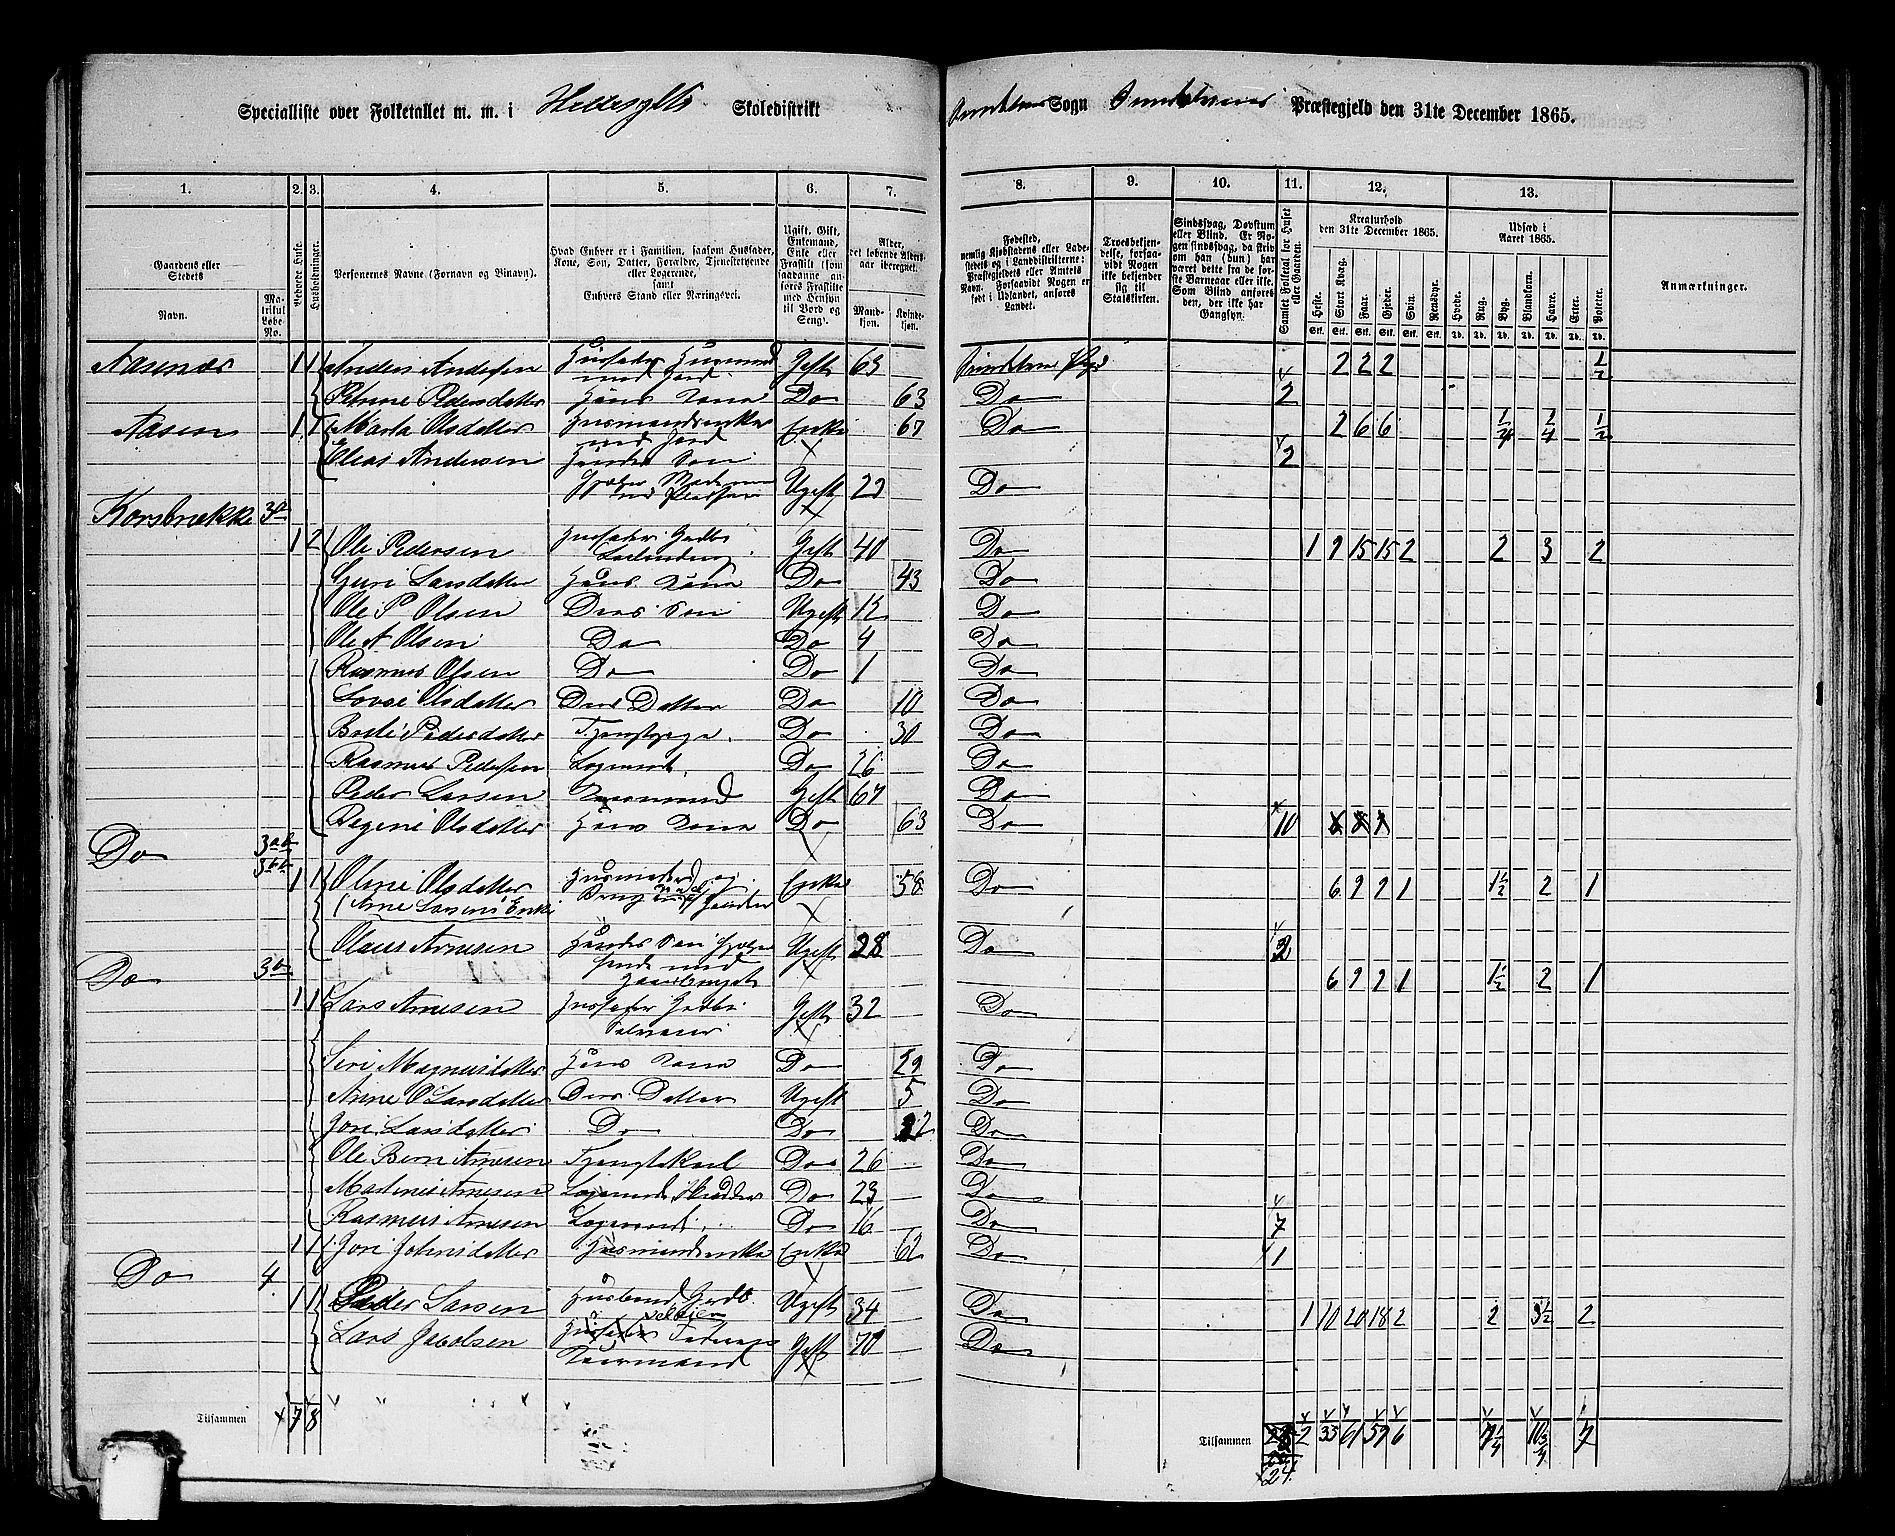 Specialliste over Folketallet m. m. i Hellesylts Skoledistrikt
Sogn Præstegjeld den 31te December 1865.
1. 2. 3. 4. 5. 6. 7. 8. 9. 10. 11. 12. 13.
Gaardens eller Stedets
Navn.
Matrikul Løbe-No.
Bebodde Huse.
Husholdninger.
Personernes Navne (Fornavn og Binavn).
Hvad Enhver er i Familien, saasom Husfader,
Kone, Søn, Datter, Forældre, Tjenestetyende
eller Logerende,
samt
Enhvers Stand eller Næringsvei.
Ugift, Gift,
Enkemand,
Enke eller
Fraskilt (som
saadanne anføres Fraskilte
med Hensyn
til Bord og
Seng).
Alder,
det løbende Aldersaar iberegnet.
Mandkjøn.
Kvindekjøn.
Fødested,
nemlig Kjøbstadens eller Ladestedets og i Landdistrikterne:
Præstegjeldets eller Amtets
Navn. Forsaavidt Nogen er
født i Udlandet, anføres
Landet.
Troesbekjendelse, forsaavidt Nogen
ikke bekjender
sig til
Statskirken.
Sindssvag, Døvstum
eller Blind. Er Nogen sindssvag, da skriv
om han (hun) har
været dette fra de første Barneaar eller ikke.
Som Blind anføres
den, der ikke har
Gangsyn.
Samlet Folketal for Huset eller Gaarden.
Kreaturhold
den 31te December 1865.
Heste. Stort Kvæg. Faar. Gjeder. Svin. Rensdyr.
Udsæd i
Aaret 1865.
Hvede. Rug. Byg. Blandkorn. Havre. Erter. Poteter.
Anmærkninger.
Aasenær 1 1 Anders Andersen Husfader Husmand med Jord Gift 63 2 2 2 1/2
Petrine Pedersdatter Hans Kone Do 63 Do 2
Aasen 1 1 Marta Olsdatter Husmandsenke med Jord Enke 67 Do 2 6 6 1/4 1/4 1/2
Elias Andersen Hendes Søn Ugift 29 Do 2
Korsbrække 3a
1 2 Ole Pedersen Husfader Gaardb. Gift 40 Do 1 9 15 15 2 2 3 2
Guri Larsdatter Hans Kone Do 43 Do
Ole P Olsen Deres Søn Ugift 12 Do
Ole A Olsen Do Do 4 Do
Rasmus Olsen Do Do 1 Do
Lovse Olsdatter Deres Datter Do 10 Do
Brite Pedersdatter Tjenstpige Do 30 Do
Rasmus Pedersen Logerende Do 26 Do
Peder Larsen Kaarmand Gift 67 Do
Regine Olsdatter Hans Kone Do 63 Do 10
Do 3ab 3bb
1 1 Oline Olsdatter Enke 58 Do 6 9 9 1 1 1/2 2 1
(Arne Larsens Enke
Olaus Arnesen Hendes Søn Ugift 28 Do 2
Do 3b 6 9 9 1 1 1/2 2 1
1 1 Lars Arnesen Husfader Gaardb. Selveier Gift 32 Do
Siri Magnusdatter Hans Kone Do 29 Do
Anne O Larsdatter Deres Datter Ugift 5 Do
Jori Larsdatter Do Do 2 Do
Ole Bern Arnesen Tjenstekarl Do 26 Do
Martinus Arnesen Logerende Skrædder Do 23 Do
Rasmus Arnesen Logerende Do 16 Do 7
1 1 Jori Johnsdatter Husmandsenke Enke 62 Do 1
Do 4
1 1 Peder Larsen Husbond Gaardb. Selveier Ugift 34 Do 1 10 20 18 2 2 3 1/2 2
Lars Jacobsen Kaarmand Gift 70 Do
Tilsammen 7 8
Tilsammen 24 2 33 61 59 6 7 1/4 10 3/4 7